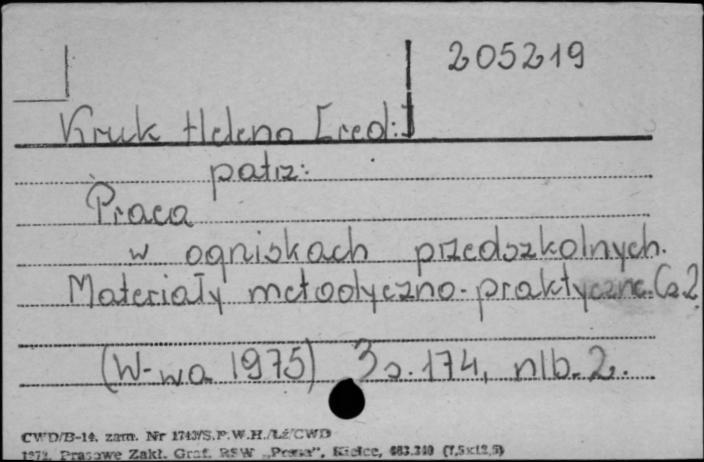 205219
Kruk Helena [red:]
patrz:
Praca
w ogniskach przedszkolnych.
Materiały metodyczno-praktyczne. Cz. 2
(W-wa 1975) 3 s. 174, nlb. 2.
CWD/B-14. zam. Nr 1743/S.P.W.H./Łź/CWD
1972. Prasowe Zakł. Graf. RSW „Prasa”, Kielce, (7,5x12,5)